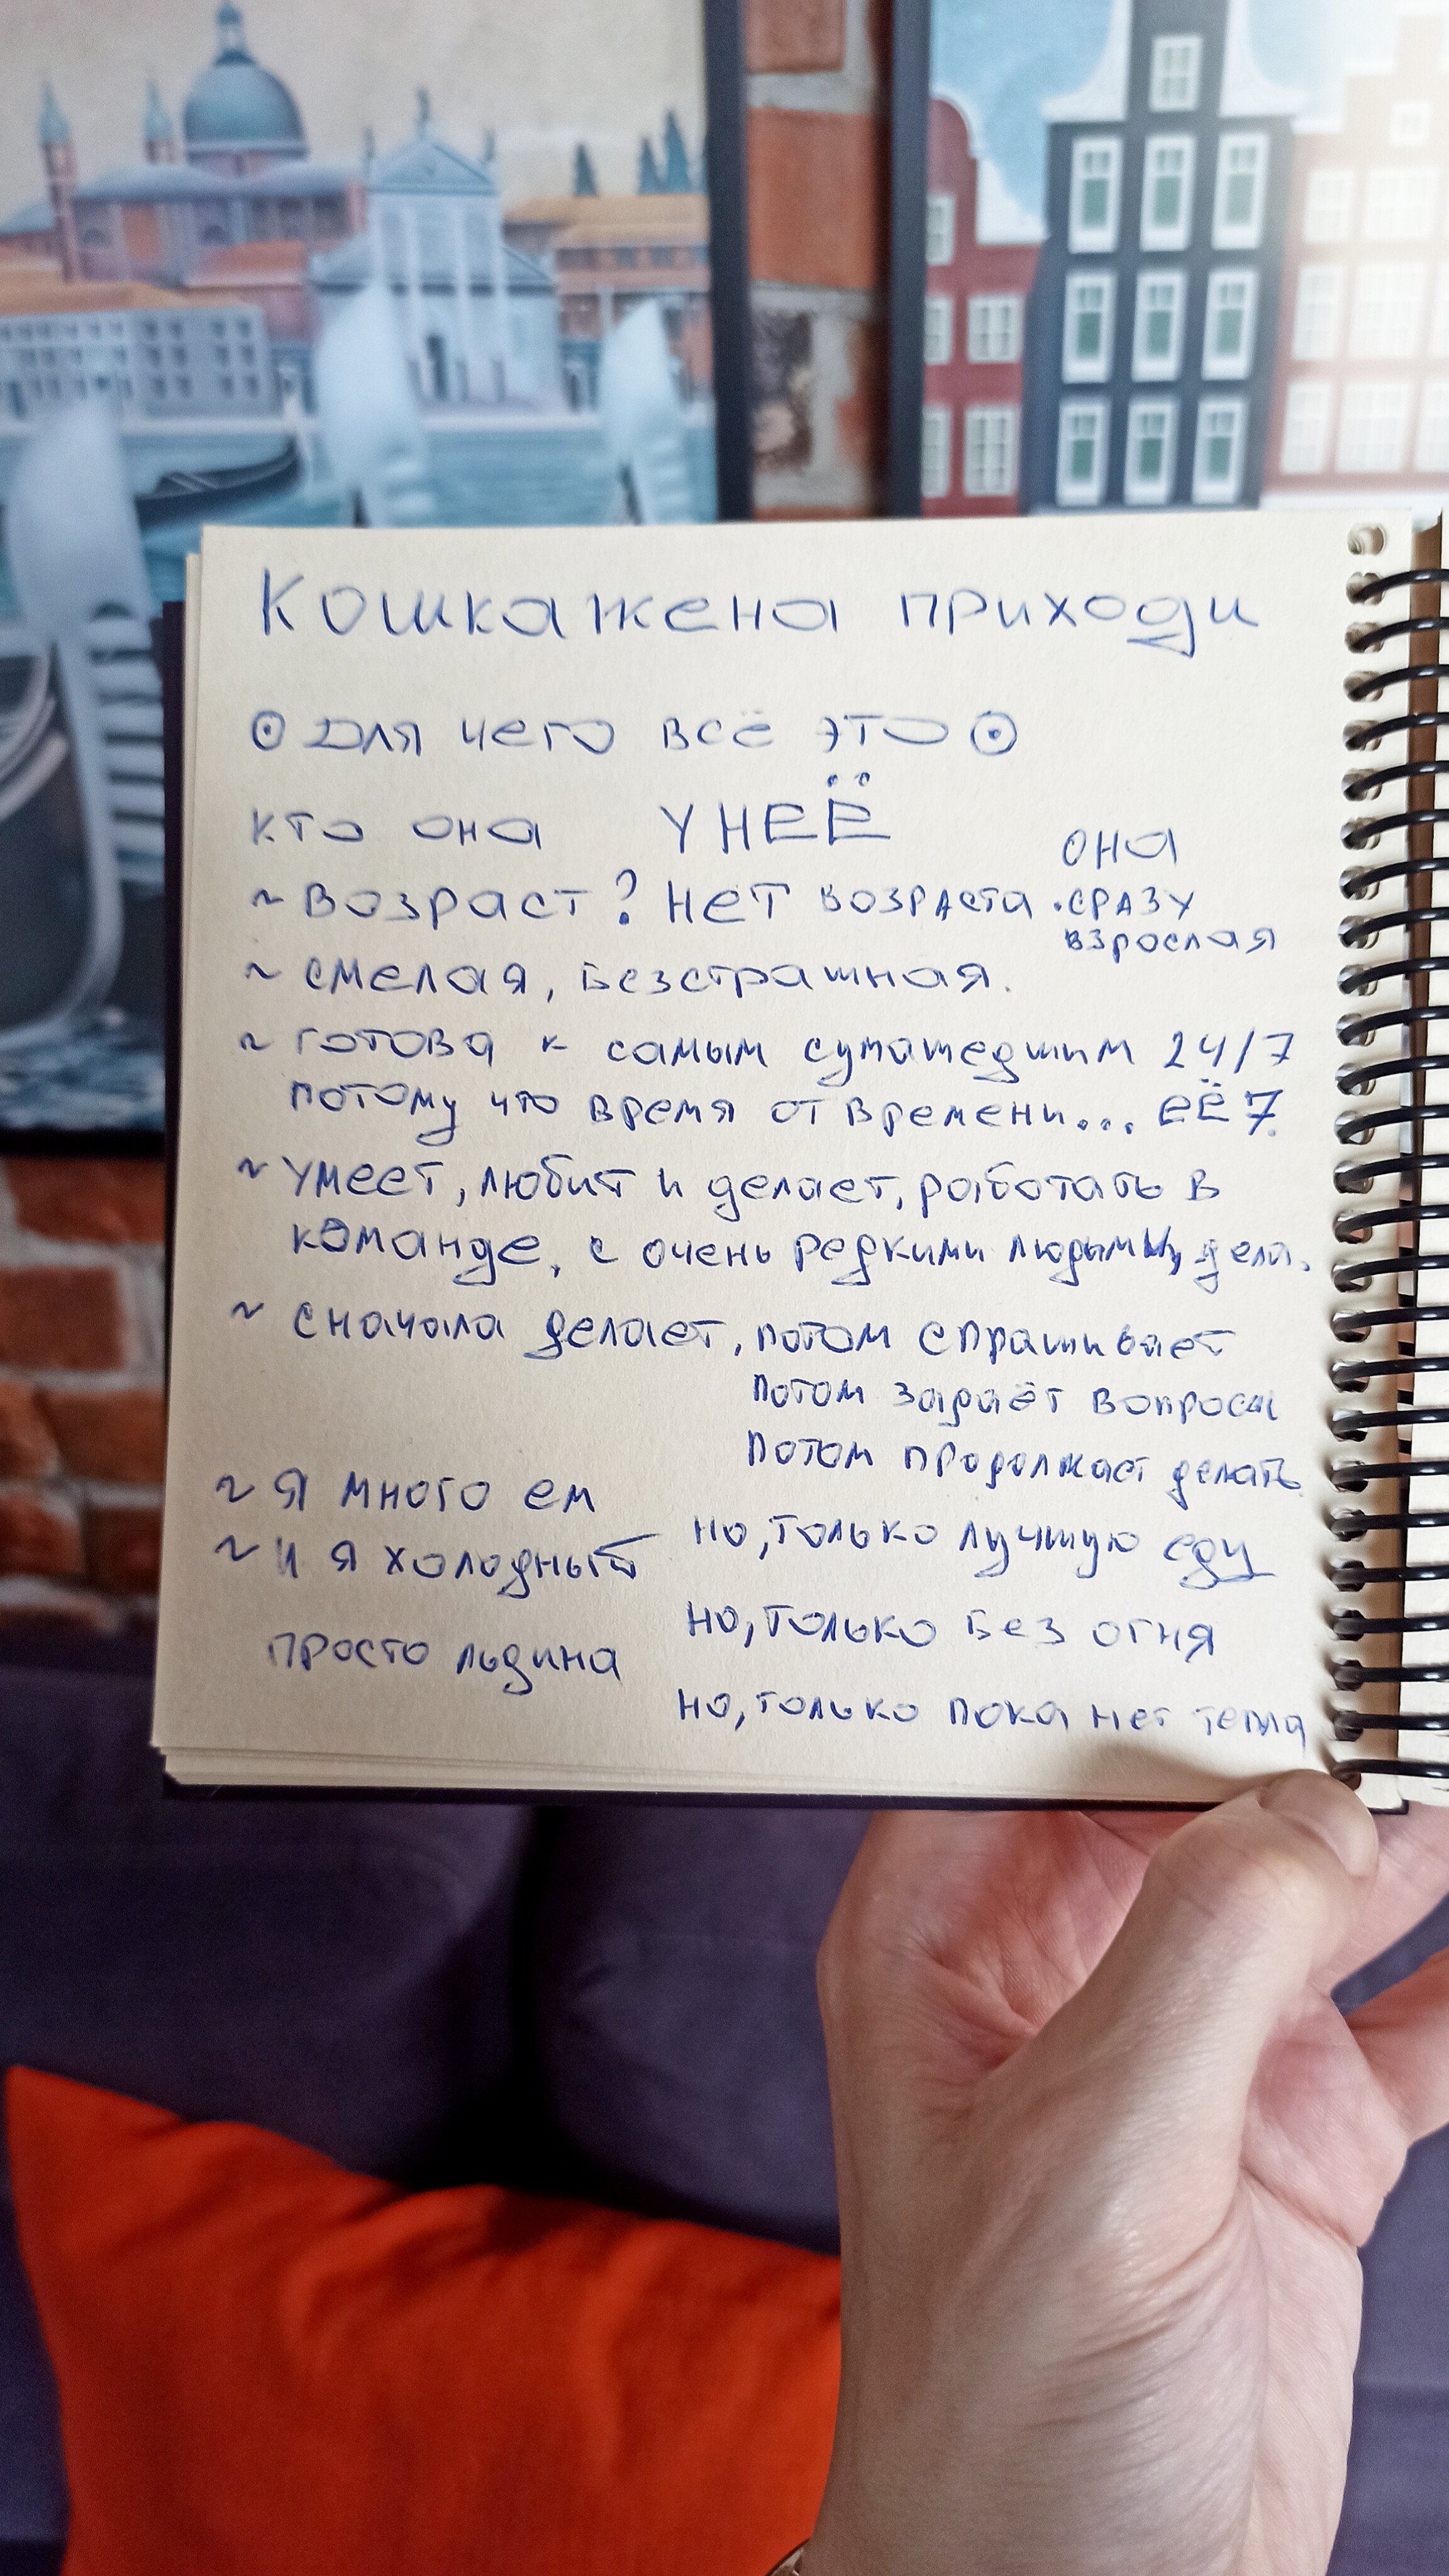 Кошкажена приходи
⊙ для чего всё это ⊙
кто она УНЕЁ
~ возраст? нет возраста. она сразу взрослая
~ смелая, безстрашная.
~ готова к самым сумашедшим 24/7
потому что время от времени... её 7.
~ умеет, любит и делает, работать в
команде, с очень редкими людьми, дела.
~ сначала делает, потом спрашивает
потом задаёт вопросы
потом продолжает делать
~ я много ем
но, только лучшую еду
~ и я холодный
но, только без огня
просто льдина
но, только пока нет тепла